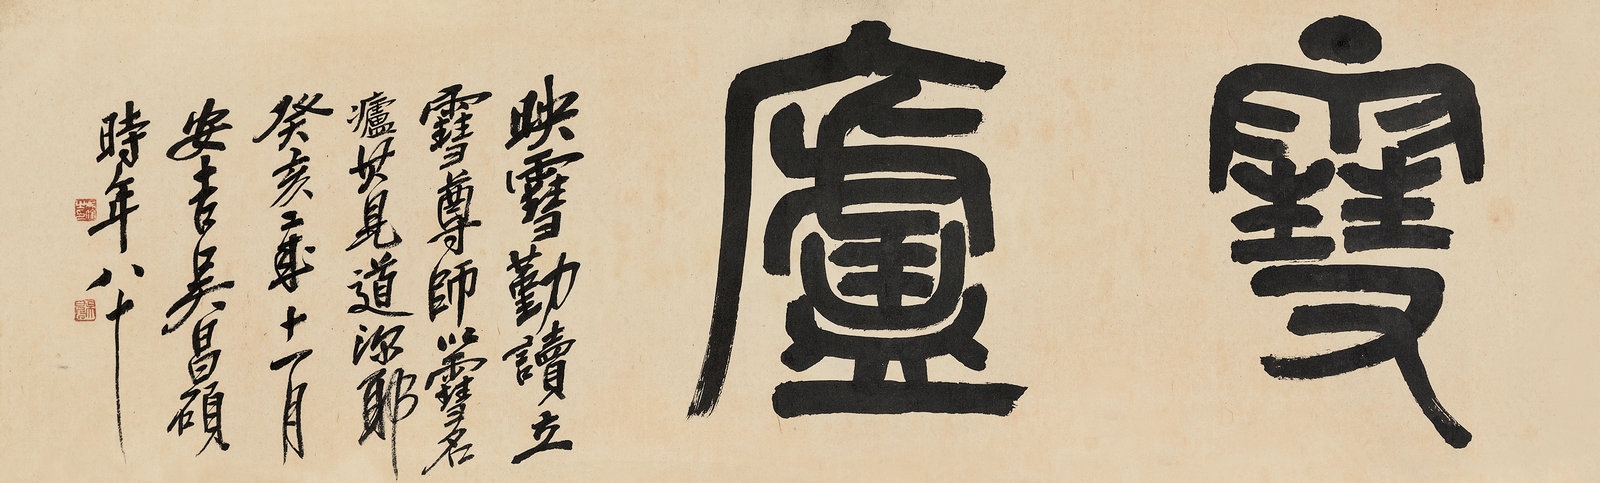 雪廬
映雪勤讀立
雪尊師以雪名
廬其見道深耶
癸亥歲十一月
安吉吳昌碩
時年八十